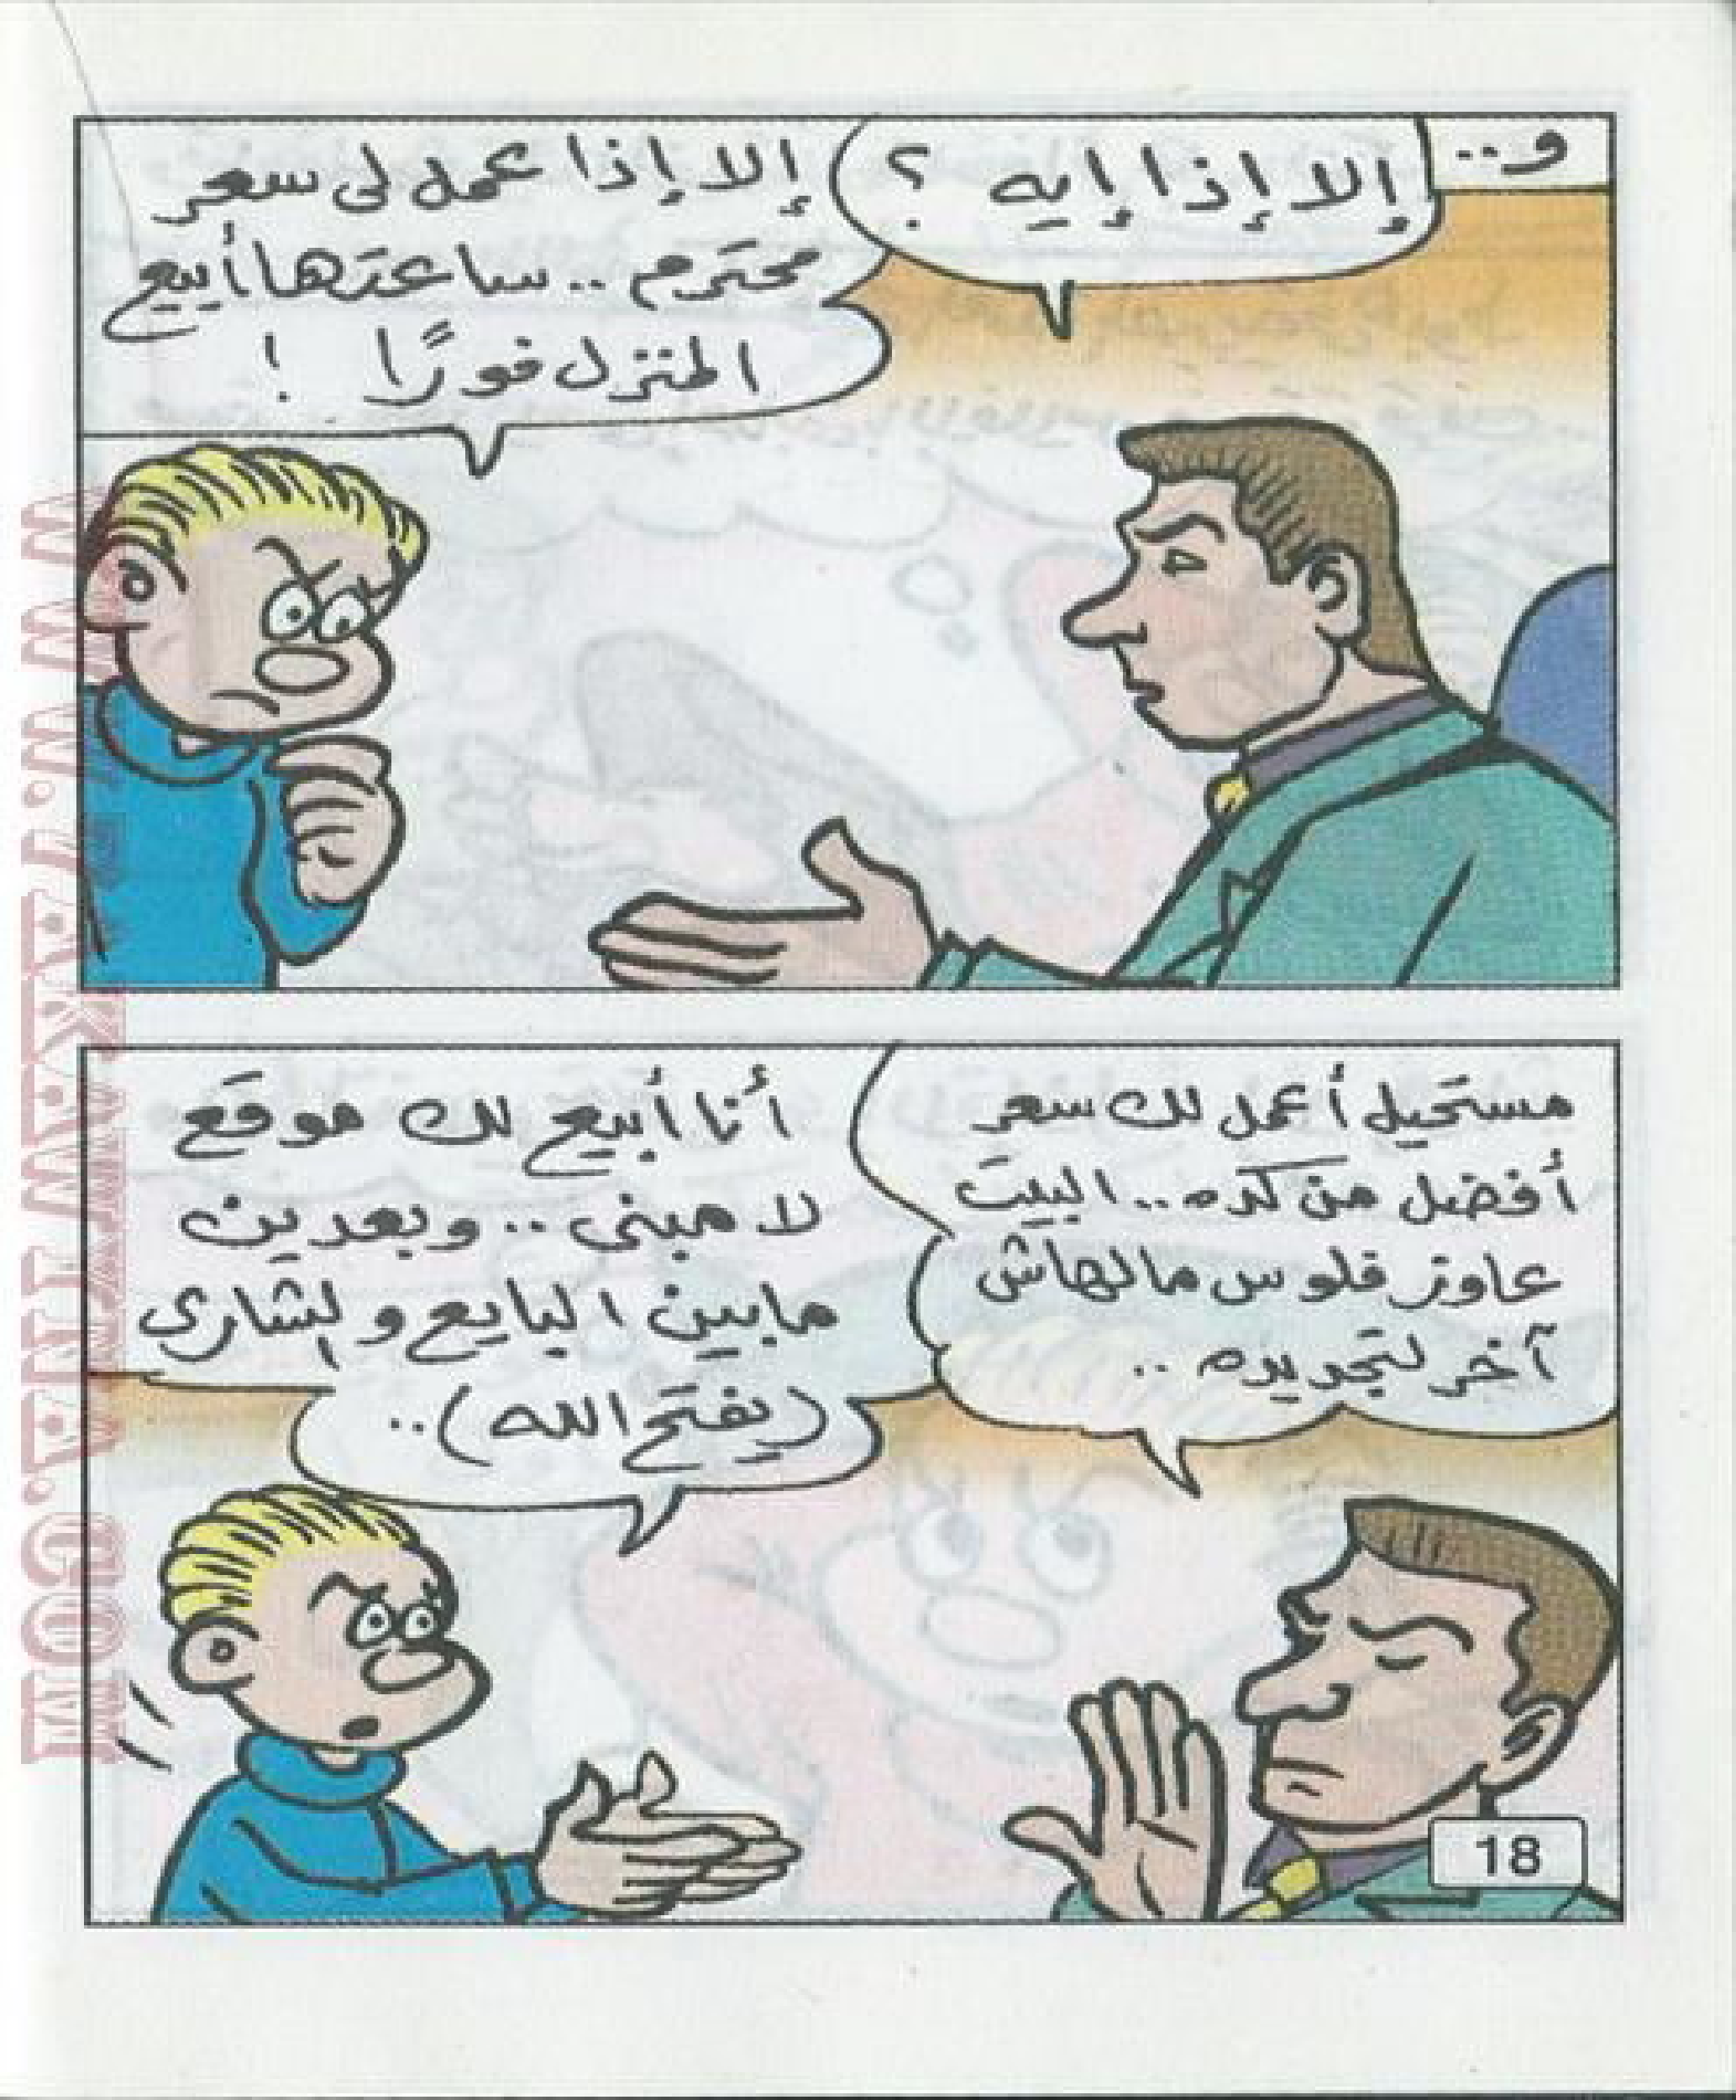 و..
إلا إذا إيه ؟
إلا إذا عمل لى سعر
محترم .. ساعتها أبيع
المنزل فورًا !
مستحيل أعمل لك سعر
أفضل من كده .. البيت
عاوز فلوس مالهاش
آخر لتجديده ..
أنا أبيع لك موقع
لا مبنى .. وبعدين
ما بين البايع والشارى
(يفتح الله) ..
18